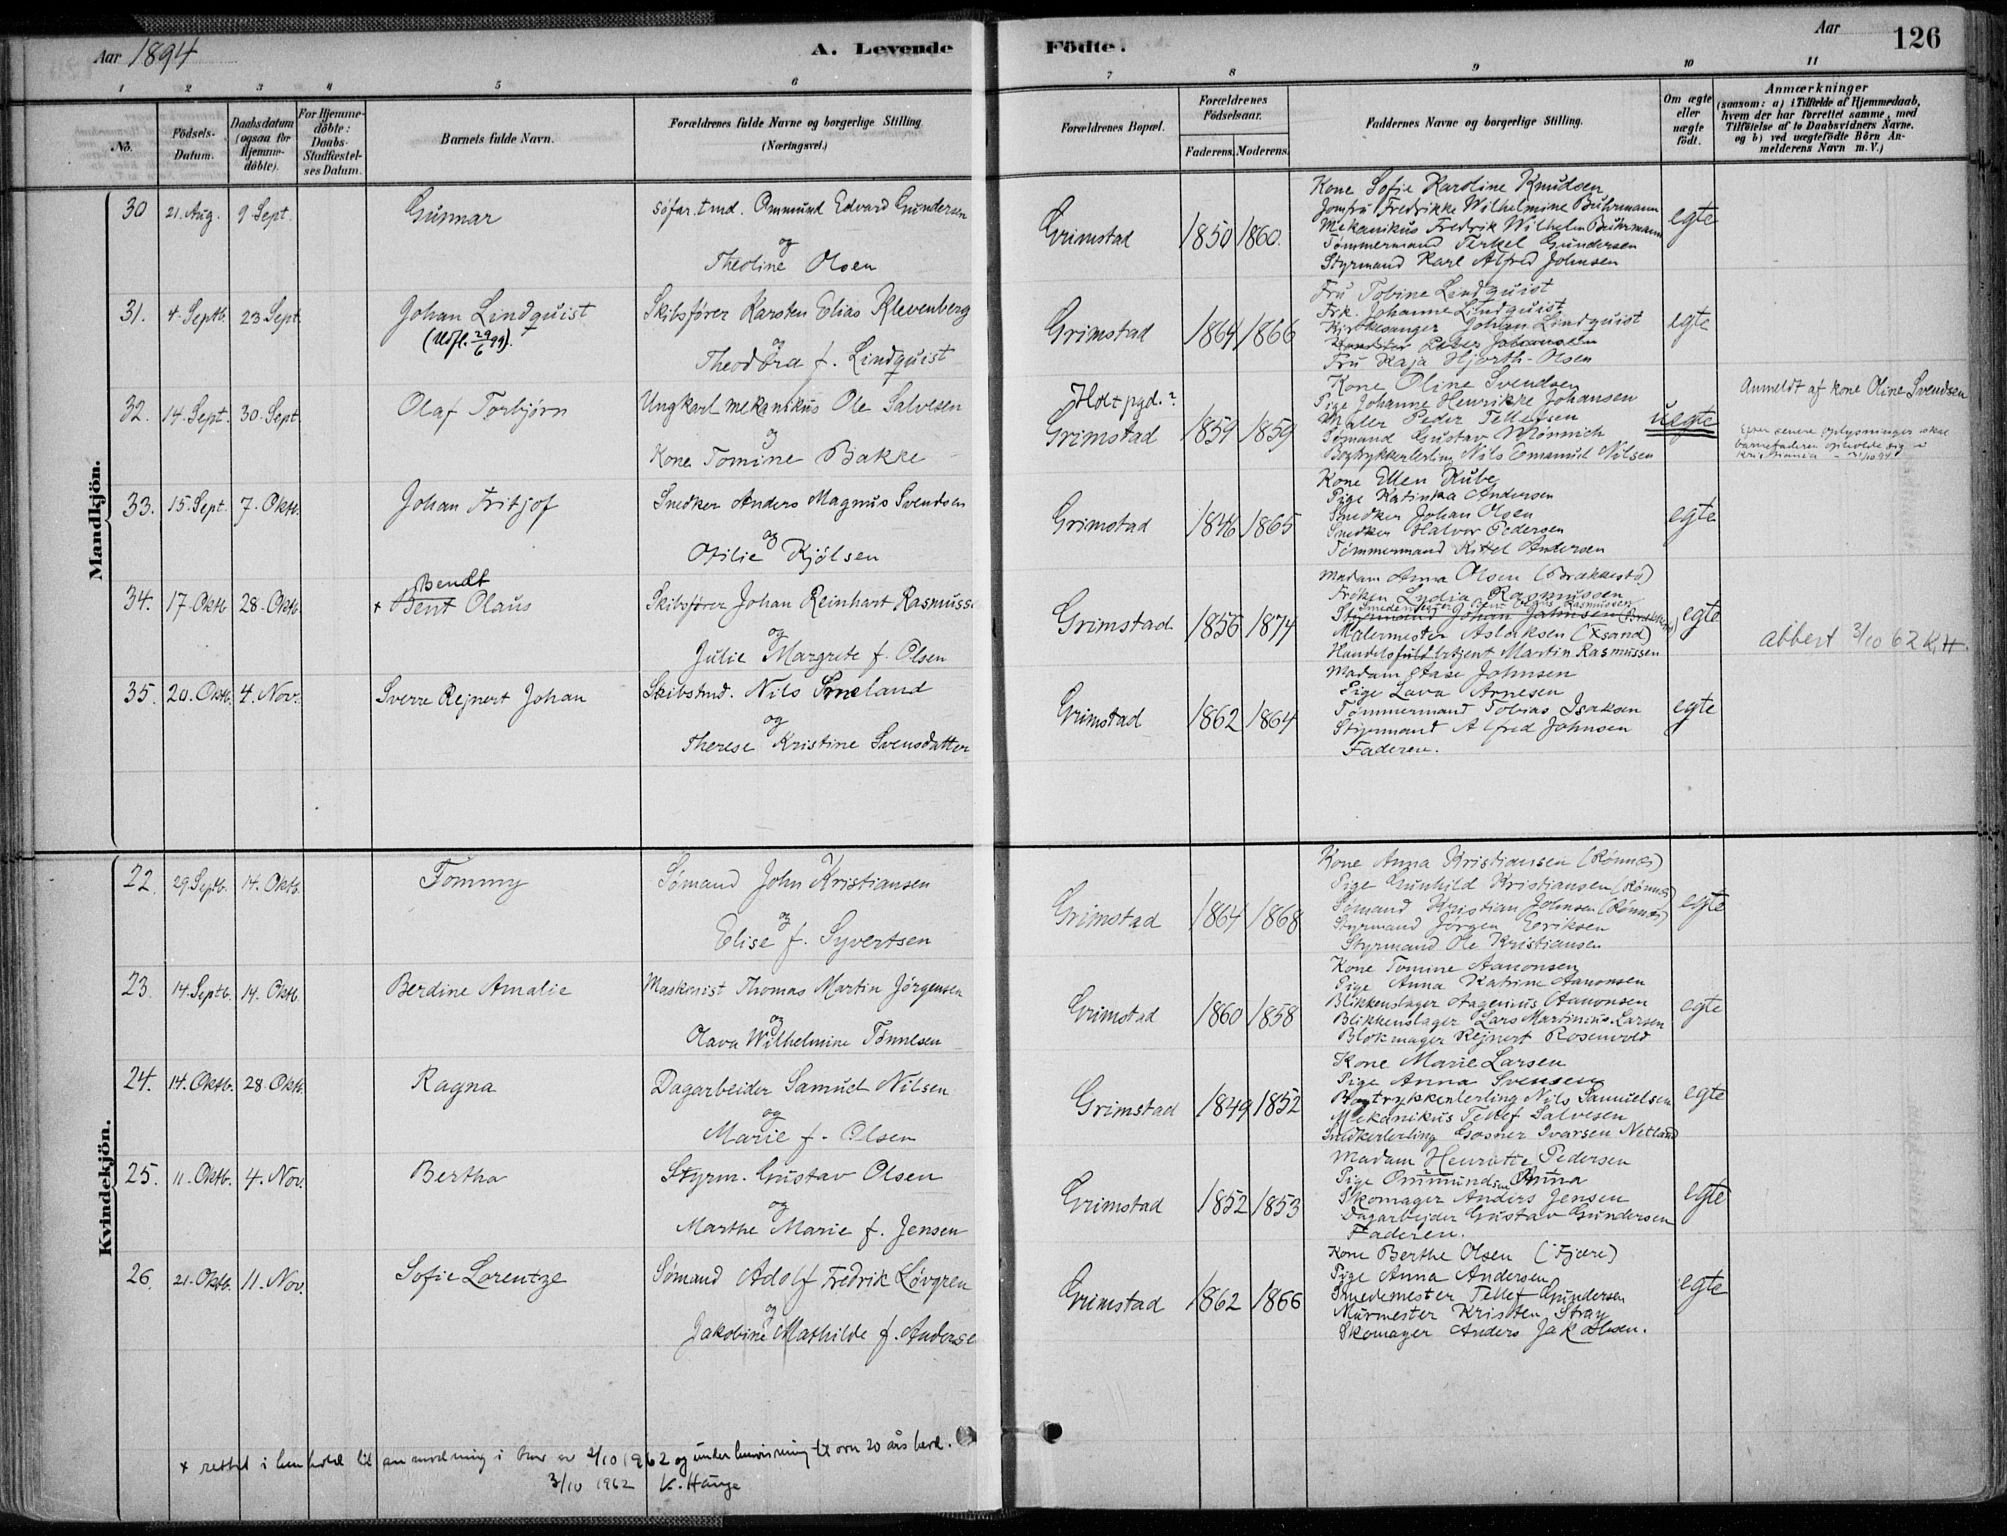 Aar 1894
A. Levende Födte.
Aar
126
1 2 3 4 5 6 7 8 9 10 11
No.
Födsels-Datum.
Daabsdatum (ogsaa for Hjemme-döbte).
For Hjemme-döbte: Daabs-Stadfæstel-ses Datum.
Barnets fulde Navn.
Forældrenes fulde Navne og borgerlige Stilling. (Næringsvei.)
Forældrenes Bopæl.
Forældrenes Födselsaar.
Faderens. Moderens.
Faddernes Navne og borgerlige Stilling.
Om ægte eller uægte födt.
Anmærkninger
(saasom: a) i Tilfælde af Hjemmedaab,
hvem der har forrettet samme, med
Tilföielse af to Daabsvidners Navne.
og b) ved uægtefödte Börn An-
melderens Navn m. V.)
Mandkjön.
30 21. Aug. 9 Sept. Gunnar
søfar.tmd. Ommund Edvard Gundersen
og
Theoline Olsen
Grimstad 1850 1860.
Kone Sofie Karoline Knudsen
Jomfru Fredrikke Wilhelmine Buhrmann
Mekanikus Fredrik Wilhelm Buhrmann
Tømmermand Terkel Gundersen
Styrmand Karl Alfred Johnsen
egte
31. 4. Septb. 23 Sept. Johan Lindquist
(Udfl. 29/6 99).
Skibsfører Karsten Elias Klevenberg
og
Theodora f. Lindquist
Grimstad 1864 1866
Fru Tobine Lindquist
Frk. Johanne Lindquist
Kirkesanger Johan Lindquist
Peder Johansen
Fru Kaja Hjorth-Olsen
egte
32. 14 Sept. 30. Sept. Olaf Torbjørn
Ungkarl mekanikus Ole Salvesen
og
Kone Tomine Bakke
Holt pgd.?
Grimstad 1859 1859
Kone Oline Svendsen
Pige Johanne Henrikke Johansen
Maler Peder Tellefsen
Sømand Gustav Mönnich
Bogtrykkerlerling Nils Emanuel Nilsen
uegte
Anmeldt af kone Oline Svendsen
Efter senere oplysninger skal
barnefaderen opholde sig i
Kristiania
33. 15. Sept. 7. Oktb. Johan Fritjof
Snedker Anders Magnus Svendsen
og
Otilie Kjølsen
Grimstad 1846 1865
Kone Ellen Kube
Pige Katinka Andersen
Snedker Johan Olsen
Snedker Halvor Pedersen
Tømmermand Kittel Andersen
egte
34. 17. Oktb 28. Oktb. Bendt
+ Bent Olaus
Skibsfører Johan Reinhart Rasmusse
og
Julie Margrete f. Olsen
Grimstad 1856 1874
Madam Anna Olsen (Brækkestø)
Frøken Lydia Rasmussen
Styrmand Johan Johnsen
Malermester Aslaksen
Martin Rasmussen
egte
abbert 3/10 62 K.H.
35. 20. Oktb. 4. Nov. Sverre Rejnert Johan
Skibstmd. Nils
og
Therese Kristine Svensdatter
Grimstad 1862 1864
Madam Aase Johnsen
Pige Lava Arnesen
Tømmermand Tobias Isaksen
Styrmand Alfred Johnsen
Faderen.
egte
Kvindekjön.
22. 29 Septb. 14. Oktb. Tommy
Sømand John Kristiansen
og
Elise f. Syvertsen
Grimstad 1864 1868
Kone Anna Kristiansen (Rønnes)
Pige Gunhild Kristiansen (Rønnes)
Sømand Kristian Johnsen (Rønnes)
Styrmand Jørgen Eriksen
Styrmand Ole Kristiansen
egte
23. 14. Septb. 14. Oktb. Berdine Amalie
Maskinist Thomas Martin Jørgensen
og
Olava Wilhelmine Tønnesen
Grimstad 1860 1858
Kone Tomine Aanonsen
Pige Anna Katrine Aanonsen
Blikkenslager Aagenius Aanonsen
Blikkenslager Lars Martinius Larsen
Blokmager Rejnert Rosenvold
egte
24. 14. Oktb. 28. Oktb. Ragna
Dagarbeider Samuel Nilsen
og
Marie f. Olsen
Grimstad 1849 1852
Kone Marie Larsen
Pige Anna Svensen
Bogtrykkerlerling Nils Samuelsen
Mekanikus Tellef Salvesen
Snedkerlerling Gosner Ivarsen Netland
egte
25. 11. Oktb. 4. Nov. Bertha
Styrm. Gustav Olsen
og
Marthe Marie f. Jensen
Grimstad 1852 1853
Madam Henriette Pedersen
Pige Ommundsen Anna
Skomager Anders Jensen
Dagarbeider Gustav Gundersen
Faderen.
egte
26. 21. Oktb. 11. Nov. Sofie Lorentze
Sømand Adolf Fredrik Løvgren
og
Jakobine Mathilde f. Anderse
Grimstad 1862 1866
Kone Berthe Olsen (Fjære)
Pige Anna Andersen
Smedemester Tellef Gundersen
Murmester Kristen Stray
Skomager Anders Jakobsen.
egte
+ rettet i henhold til anmodning i brev av 2/10 1962 og under henvisning til over 20 års hevd.
3/10 1962 K. Hauge